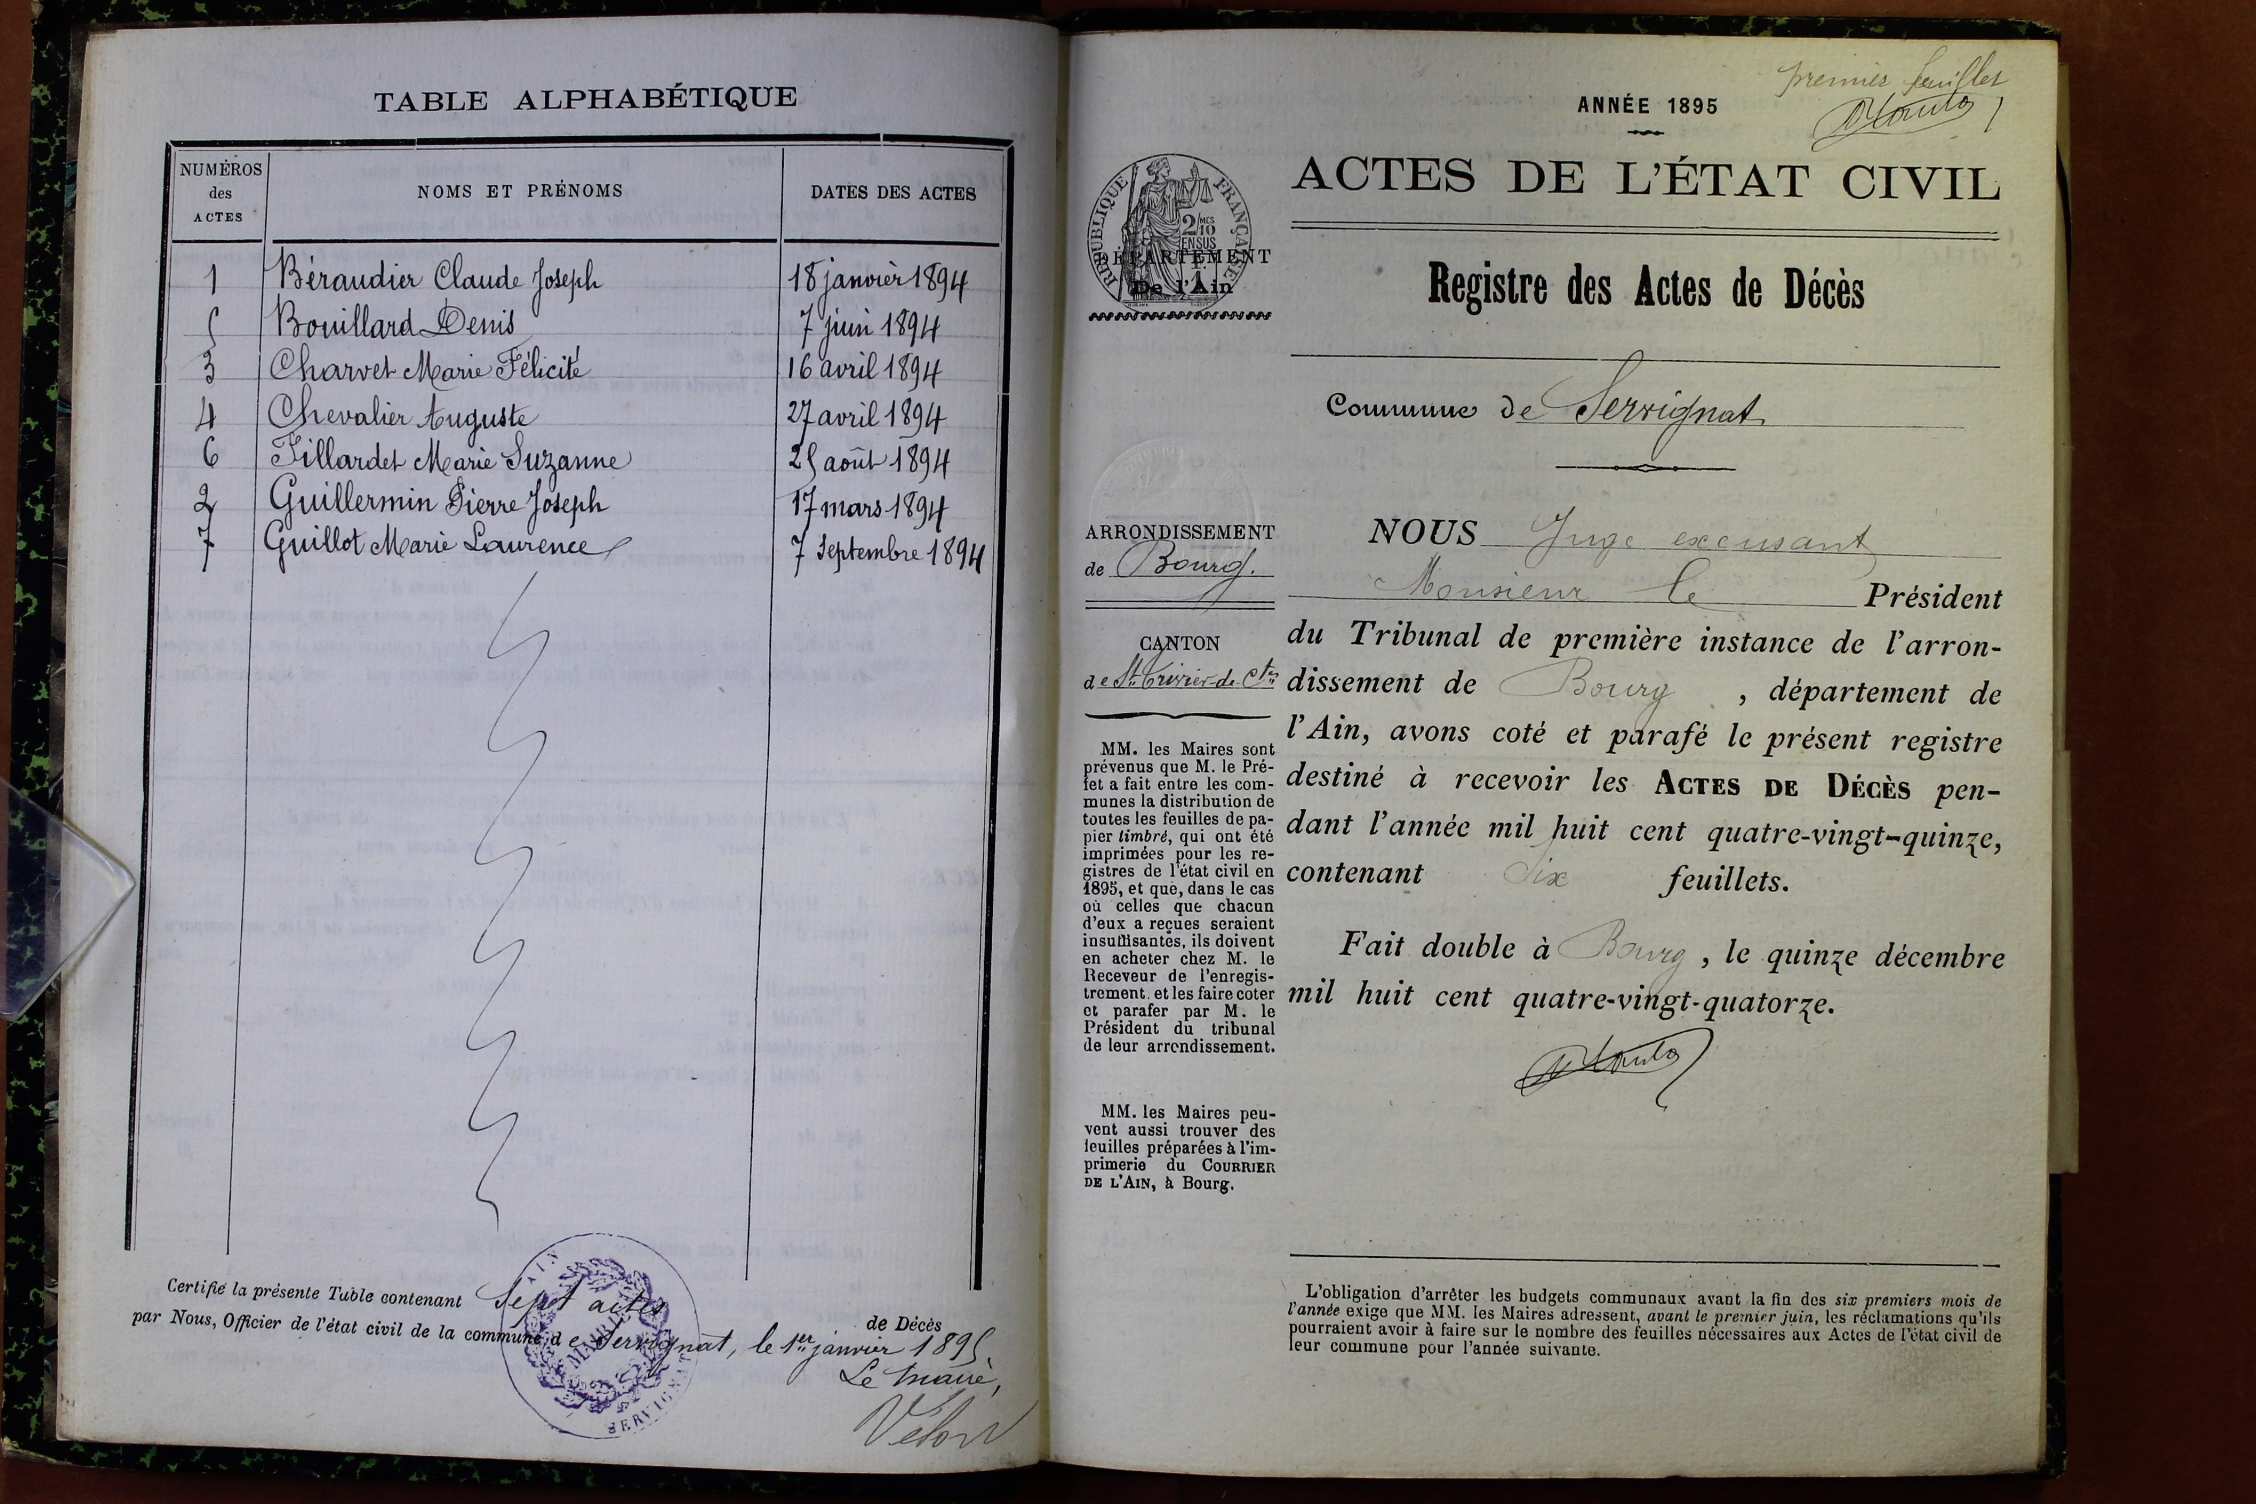 TABLE ALPHABÉTIQUE
NUMÉROS des ACTES
NOMS ET PRÉNOMS
DATES DES ACTES
1 Béraudier Claude Joseph 18 janvier 1894
5 Bouillard Denis 7 juin 1894
3 Charvet Marie Félicité 16 avril 1894
4 Chevalier Auguste 27 avril 1894
6 Fillardet Marie Suzanne 25 août 1894
2 Guillermin Pierre Joseph 17 mars 1894
7 Guillot Marie Laurence 7 Septembre 1894
Certifié la présente Table contenant Sept actes de Décès
par Nous, Officier de l'état civil de la commune de Servignat, le 1er janvier 1895
Le Maire,
AIN
MAIRIE
SERVIGNAT
premier feuillet
ANNÉE 1895
ACTES DE L'ÉTAT CIVIL
RÉPUBLIQUE FRANÇAISE
2/10 MES
EN SUS
DÉPARTEMENT
De l'Ain
Registre des Actes de Décès
Commune de Servignat
ARRONDISSEMENT
de Bourg.
CANTON
de St Trivier-de-Ctes
MM. les Maires sont
prévenus que M. le Pré-
fet a fait entre les com-
munes la distribution de
toutes les feuilles de pa-
pier timbré, qui ont été
imprimées pour les re-
gistres de l'état civil en
1895, et que, dans le cas
où celles que chacun
d'eux a reçues seraient
insuffisantes, ils doivent
en acheter chez M. le
Receveur de l'enregis-
trement, et les faire coter
et parafer par M. le
Président du tribunal
de leur arrondissement.
MM. les Maires peu-
vent aussi trouver des
feuilles préparées à l'im-
primerie du COURRIER
DE L'AIN, à Bourg.
NOUS Juge excusant
Monsieur le Président
du Tribunal de première instance de l'arron-
dissement de Bourg, département de
l'Ain, avons coté et parafé le présent registre
destiné à recevoir les ACTES DE DÉCÈS pen-
dant l'année mil huit cent quatre-vingt-quinze,
contenant Six feuillets.
Fait double à Bourg, le quinze décembre
mil huit cent quatre-vingt-quatorze.
L'obligation d'arrêter les budgets communaux avant la fin des six premiers mois de
l'année exige que MM. les Maires adressent, avant le premier juin, les réclamations qu'ils
pourraient avoir à faire sur le nombre des feuilles nécessaires aux Actes de l'état civil de
leur commune pour l'année suivante.